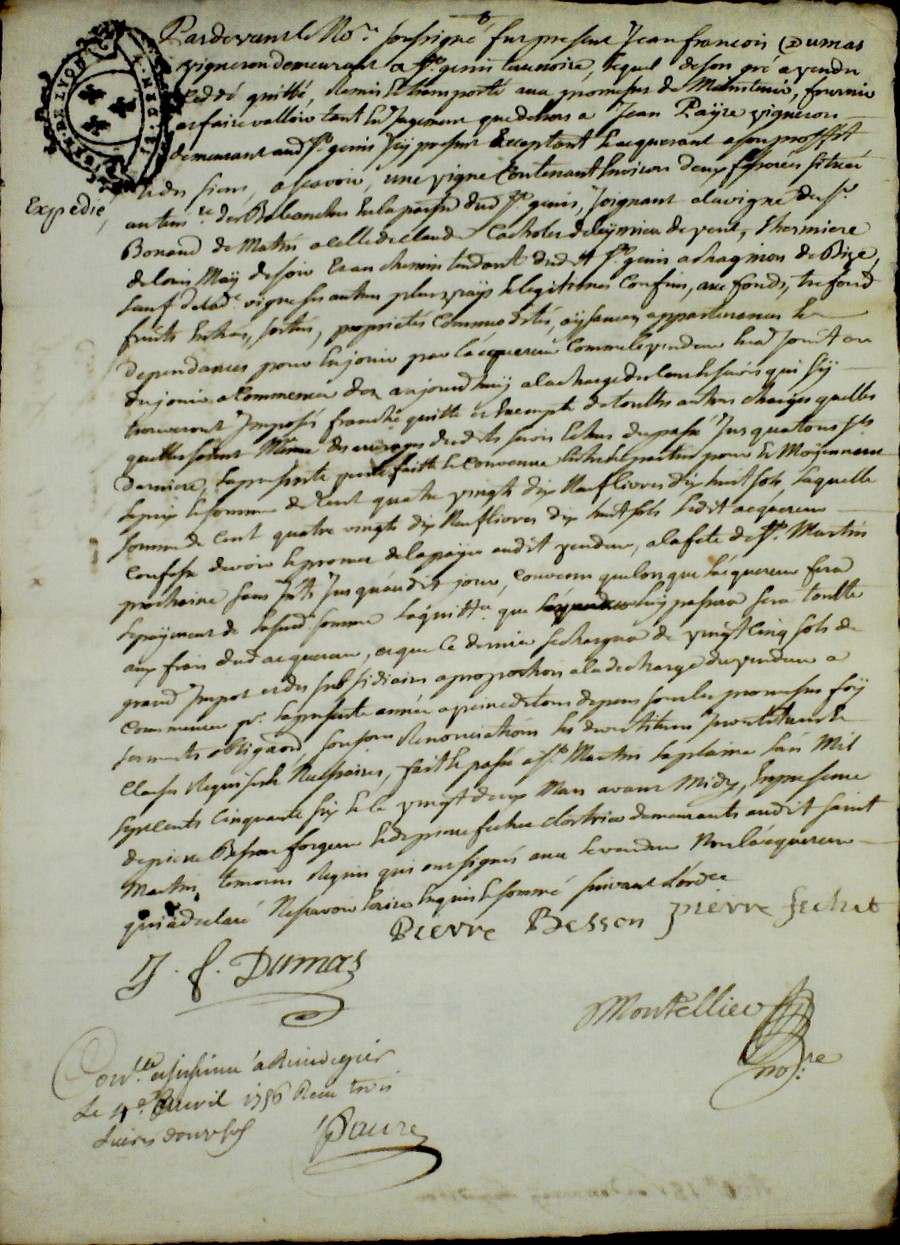 Pardevant le No.re soussigné fut present Jean francois Dumas
vigneron demeurant a St genis terrenoire, lequel de son gré a vendu
cedé quitté, Remis et transporté aux promesses de Maintenir, fournir
et faire valloir tant en Jugement que dehors a Jean Payre vigneron
demeurant aud St genis Icy present et acceptant et acquerant a son proffit
et des siens, a scavoir, une vigne Contenant Environ deux situeé
Expedié
au ter.re des en la parsse dud St genis, Joignant a la vigne du Sr
Bonand de matin a celle de Claude de vent,
de louis May de soir et au chemin tendant dudt St genis a chagnon de Bize,
sauf de lad. vigne ses autres plus vrays et legitimes Confins, avec fonds, trefond
fruits Entreés, sorties, proprietés Commodités, aysances, appartenances et
dependances pour En jouir par l'acquereur Comme le vendeur En a Jouit ou
du jouir a Commencer des aujourd'huy a la charge des servis qui s'y
trouveront Imposés franche quitte et Exempte de touttes autres charges quelles
quelles soient Même des arrerages desdits servis et taux du passé Jusqu'a tous Sts
derniere, la presente vente faitte et Convenue Entre les parties pour et Moyennant
le prix et somme de Cent quatre vingts dix Neuf livres dix huit sols, laquelle
somme de Cent quatre vingts dix Neuf livres dix huit sols ledit acquereur
Confesse devoir et promet de la payer audit vendeur, a la fete de St. Martin
prochaine sans Jusqu'audit jour, Convenu que lorsque l'acquereur fera
le payement de la susd. somme la quitt.ce que luy passera sera toutte
aux frais dud acquereur, et que Ce dernier se chargera de vingt Cinq sols de
grand Impot et des subsidiaires a proportion a la decharge du vendeur a
Commencer pr. la presente année a peine de tous depens sous les promesses foy
serments obligaons, soumons Renonciations
Clauses Requises et Necessaires, fait et passé a St Martin la plaine L'an Mil
sept cents Cinquante six et le vingt deux Mars avant Midy, En presence
de pierre Besson forgeur et de pierre fechet demeurants audit saint
Martin, temoins Requis qui ont signés avec le vendeur Non l'acquereur
qui a declaré Ne scavoir Ecrire Enquis et sommé suivant l'ordce
Pierre Besson pierre fechet
J. f. Dumas
Montellier
no.re
Con.lle
Le 4e Avril 1756 Reçu trois
Livres douze sols
Faure